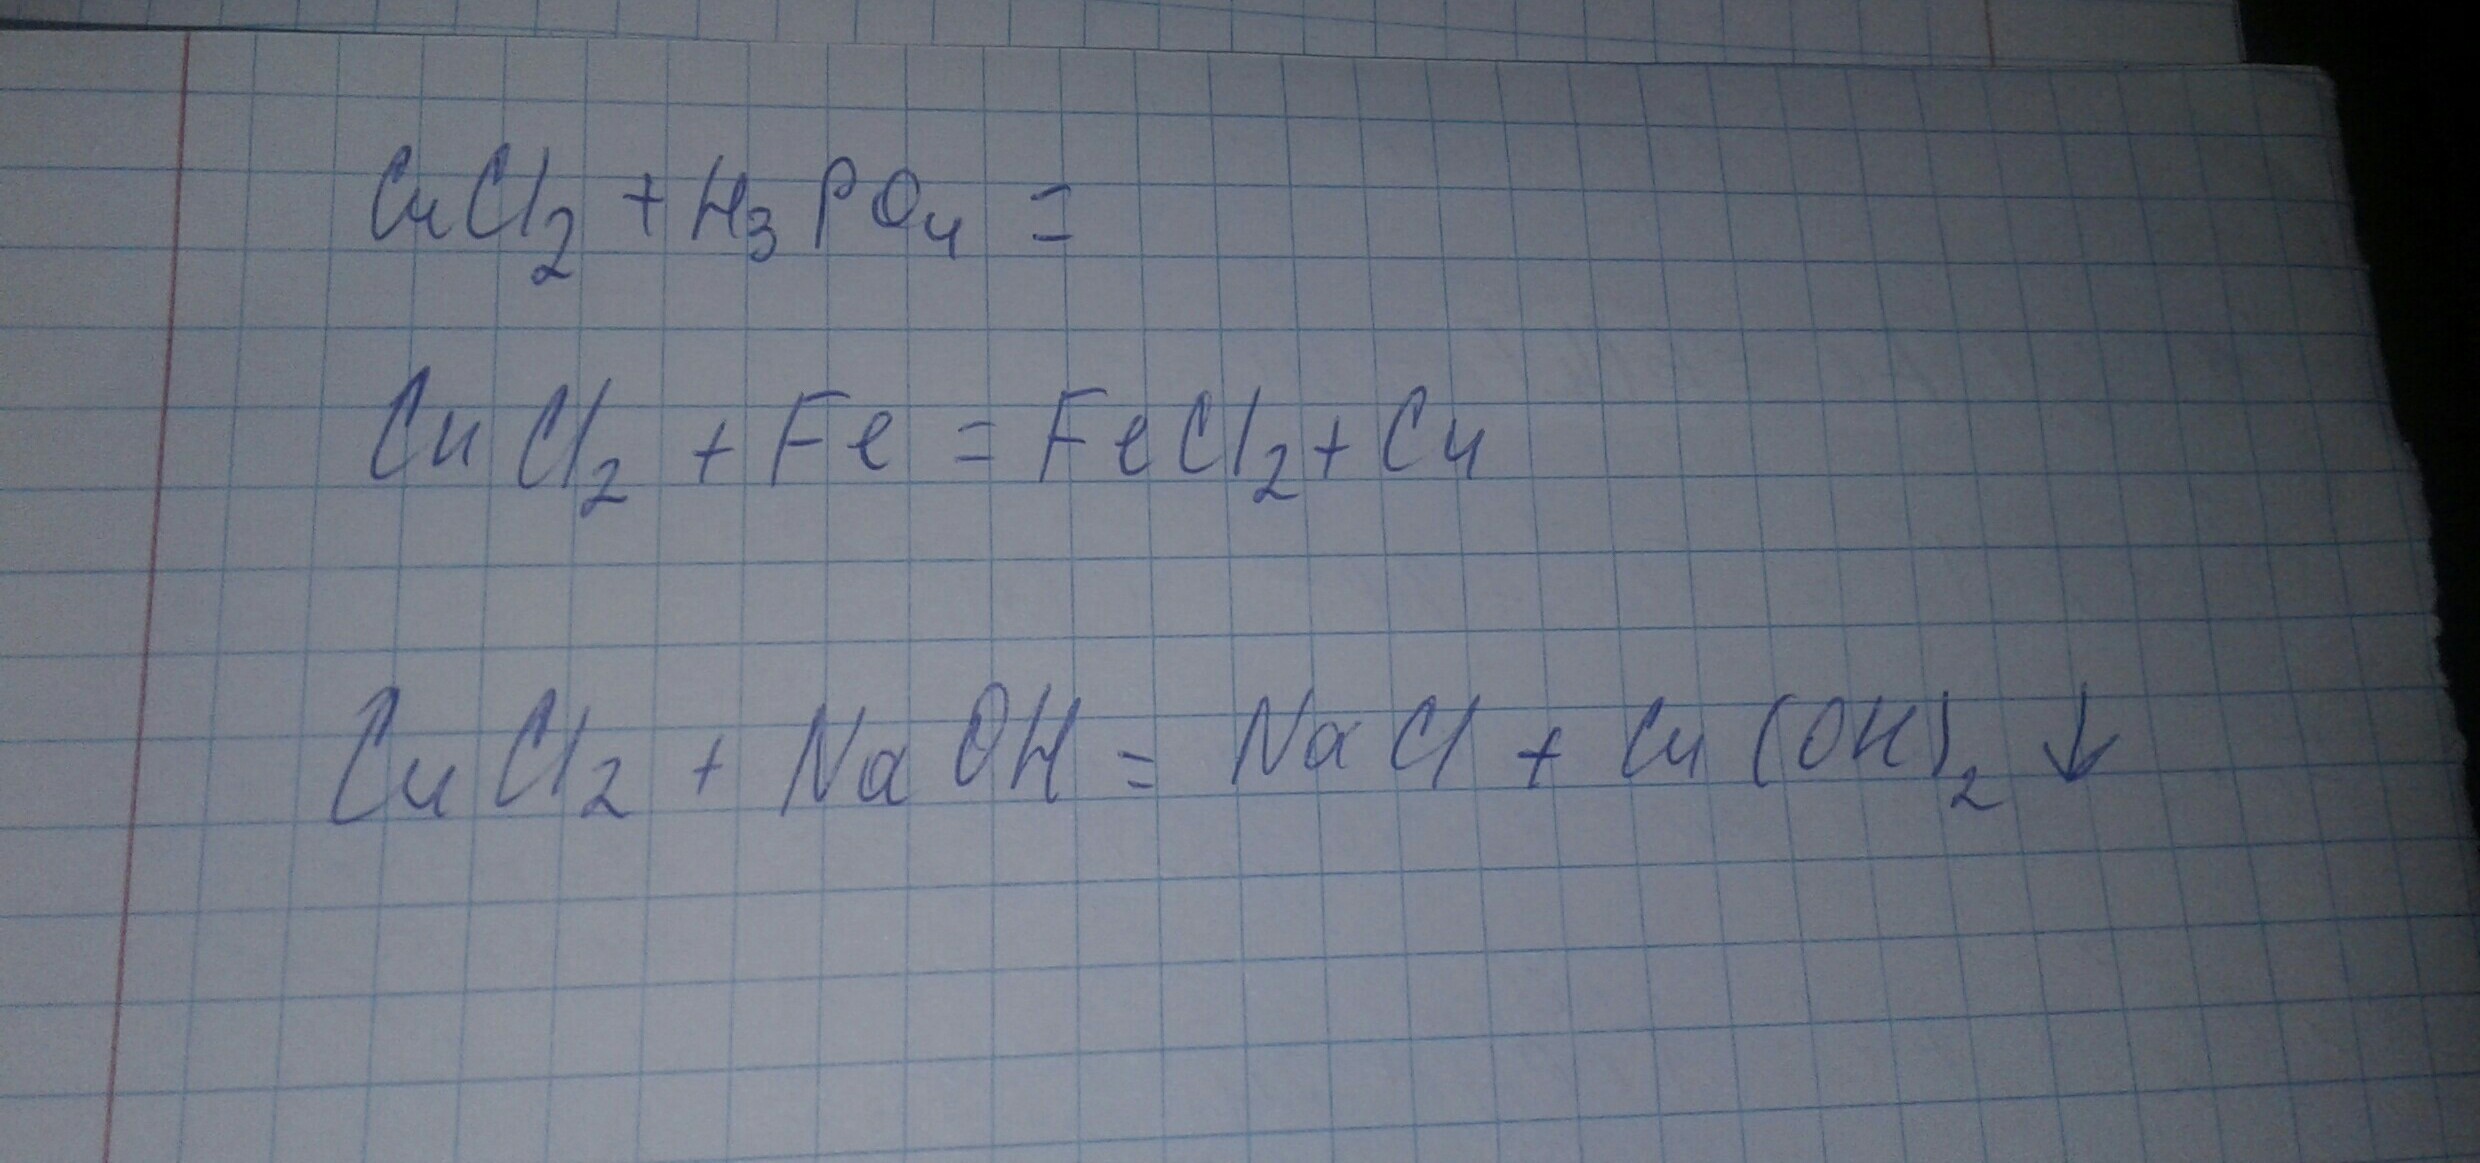 CuCl₂ + H₃PO₄ =
CuCl₂ + Fe = FeCl₂ + Cu
CuCl₂ + NaOH = NaCl + Cu(OH)₂ ↓